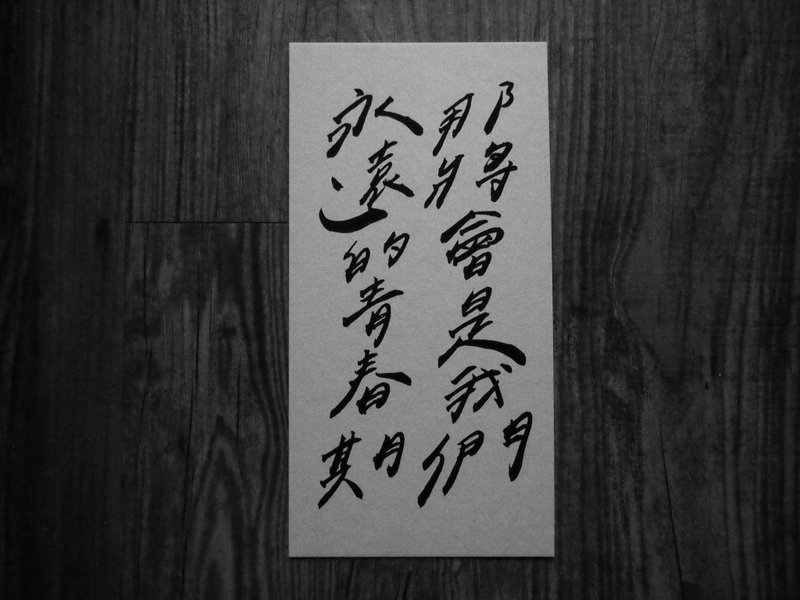 那將會是我們
永遠的青春期